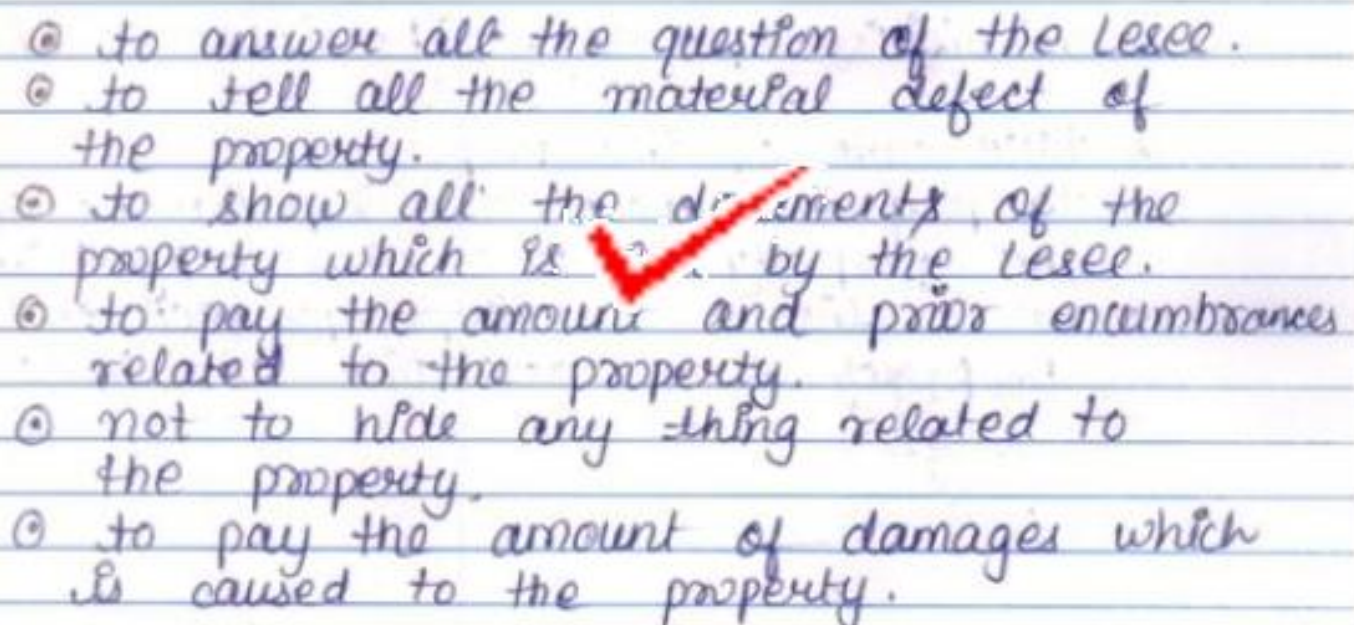 to answer all the question of the Lesee.
to tell all the material defect of
the property.
to show all the of the
property which is by the Lesee.
to pay the amount and prior encumbrances
related to the property.
not to hide any thing related to
the property.
to pay the amount of damages which
is caused to the property.